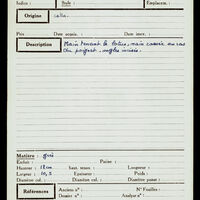 Index : Style : Emplacem. :
Origine
Prix Date acquis. : Date inscr. :
Description Main tenant le lotus, main cassée au ras
du poignet, ongles incisés.
Matière : grès
Enduit : Patine :
Hauteur : haut. tenon : Longueur :
Largeur : 10,5 Epaisseur : Poids :
Diamètre col : Diamètre panse :
Références Anciens nos : No Fouilles :
Dossier no : Analyse no :